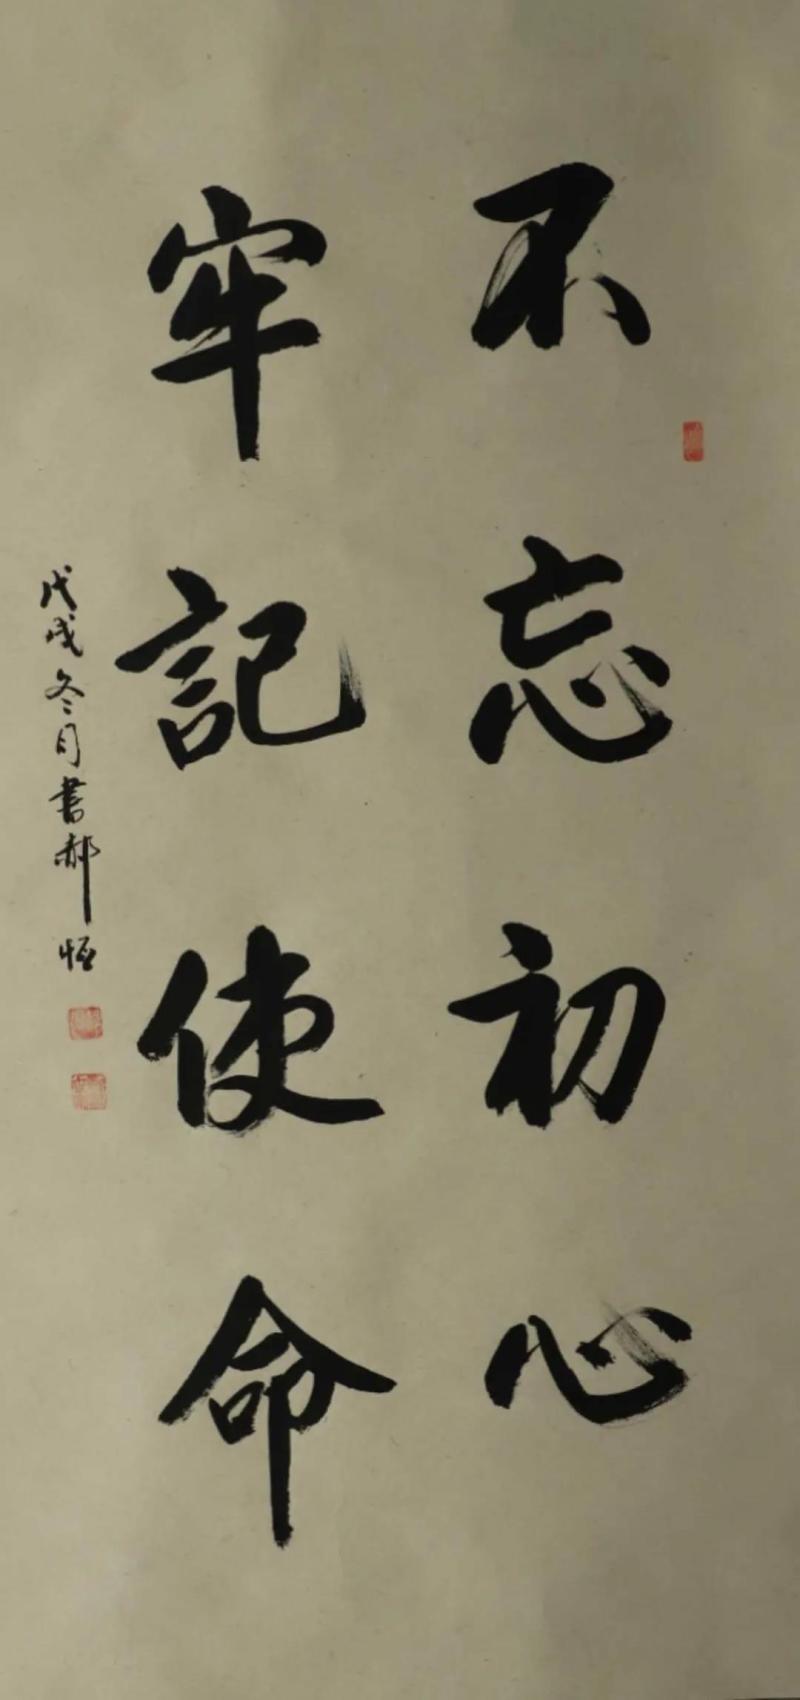 不忘初心
牢記使命
戊戌冬月書郝恒